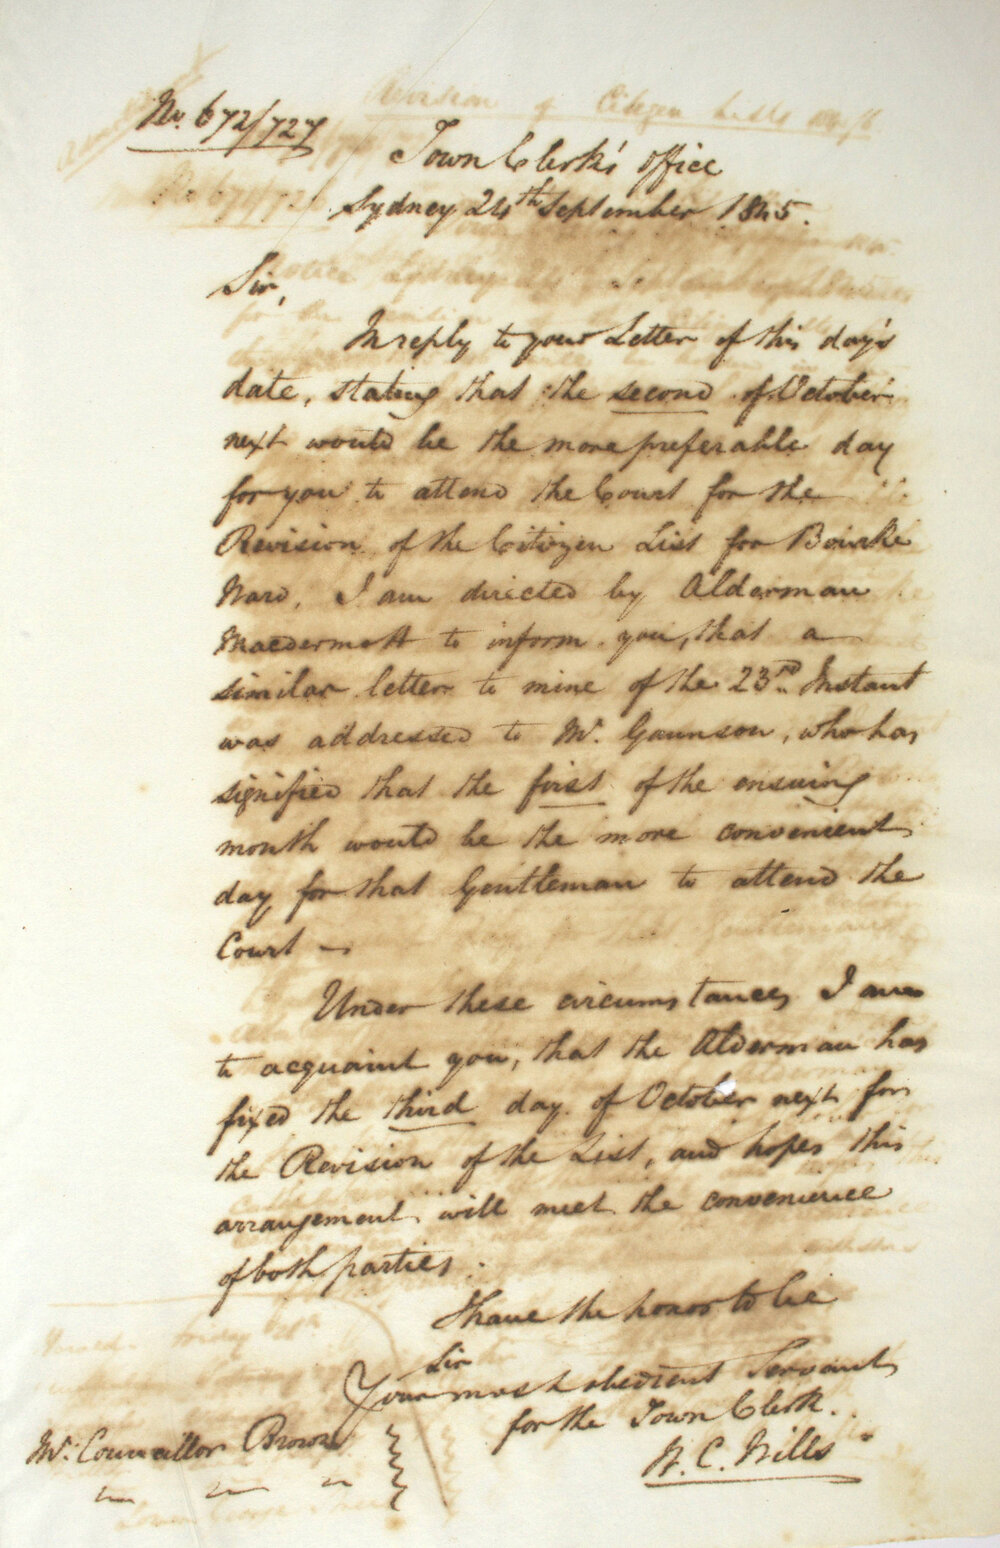 No. 672/727
Town Clerk's Office
Sydney 24th September 1845.
Sir,
In reply to your Letter of this day's
date, stating that the second of October
next would be the more preferable day
for you to attend the Court for the
Revision of the Citizen List for Bourke
Ward, I am directed by Alderman
Macdermott to inform you, that a
similar letter to mine of the 23rd. Instant
was addressed to Mr. Gaunson, who has
signified that the first of the ensuing
month would be the more convenient
day for that Gentleman to attend the
Court —
Under these circumstances I am
to acquaint you, that the Alderman has
fixed the third day of October next for
the Revision of the List, and hopes this
arrangement will meet the convenience
of both parties.
I have the honor to be
Sir
Your most obedient Servant
for the Town Clerk.
W. C. Wills
Mr. Councillor Brown